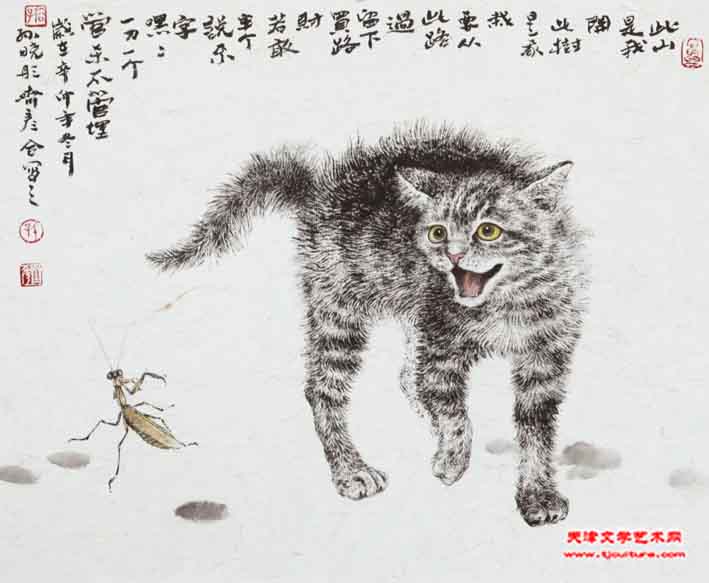 此山
是我
開
此樹
是我
栽
要从
此路
過
留下
買路
財
若敢
半个
説不
字
嘿〻
一刀一个
管杀不管埋
歲在辛卯年冬月
孙晓彤齊彦合寫之
天津文学艺术网
www.tjculture.com